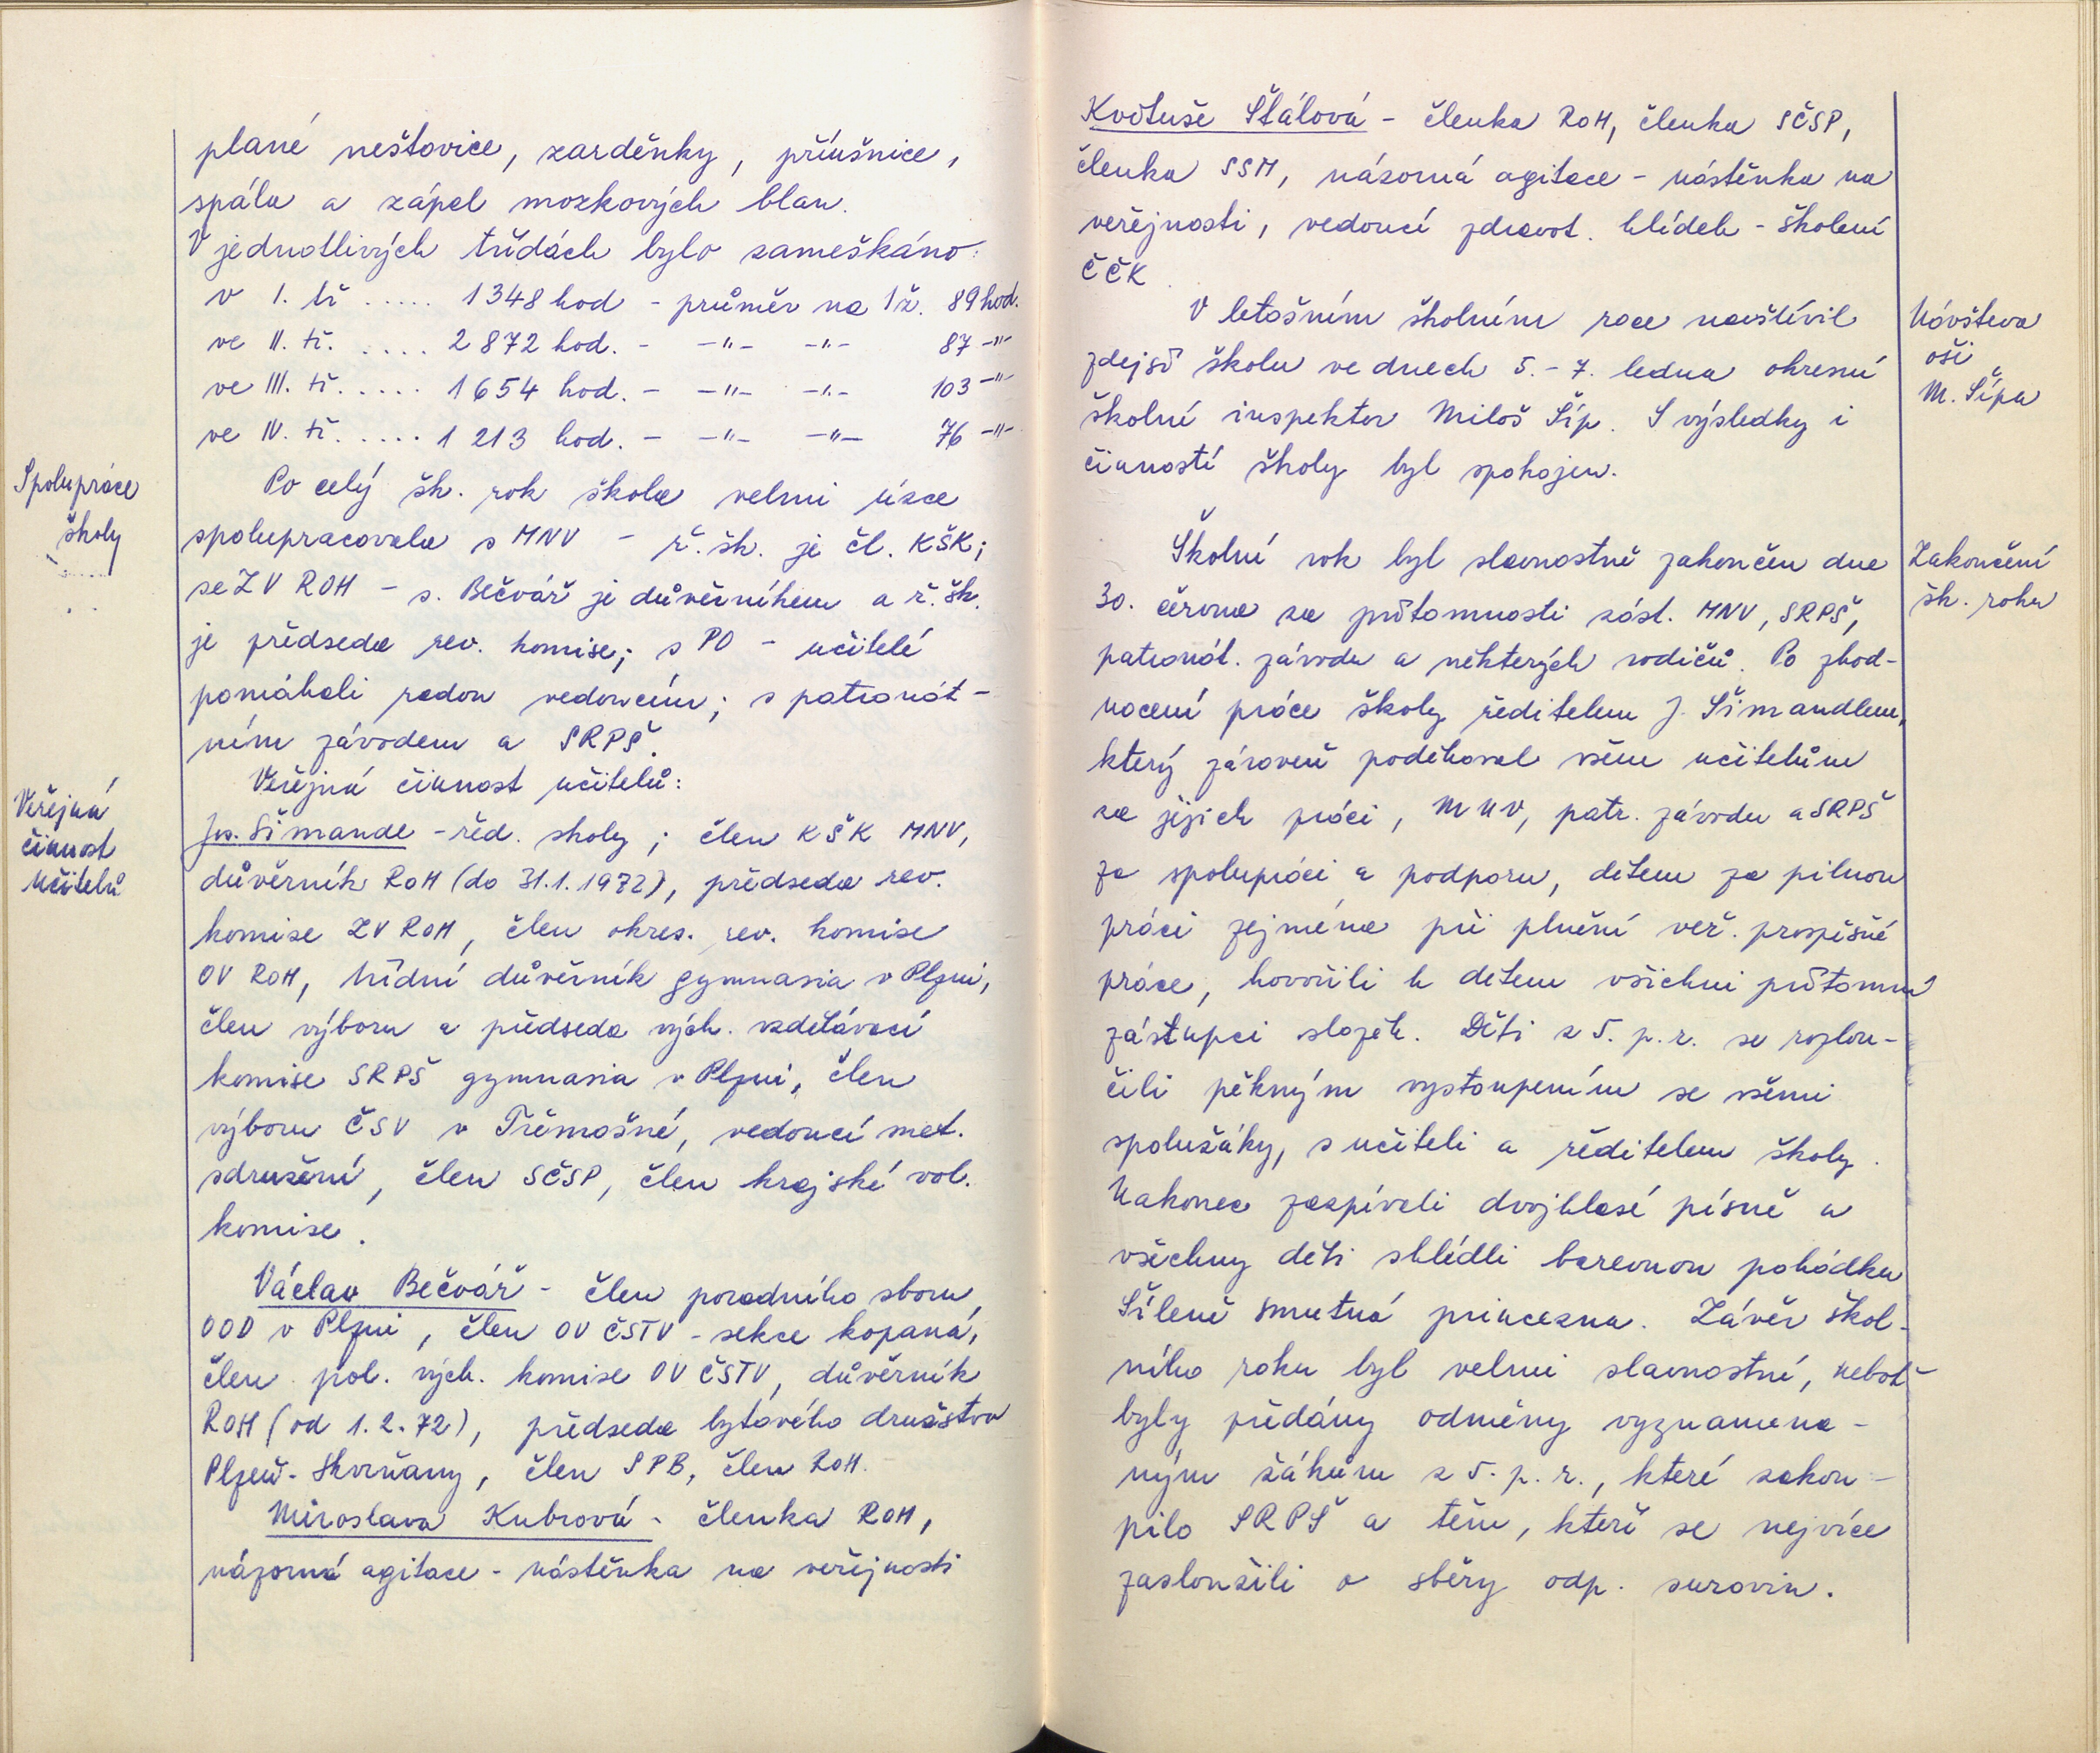 plané neštovice, zarděnky, příušnice,
spála a zápal mozkových blan.
V jednotlivých třídách bylo zameškáno:
v I. tř ..... 1348 hod - průměr na 1 ž. 89 hod.
ve II. tř. .... 2872 hod. - -"- -"- 87 -"-
ve III. tř. .... 1654 hod. - -"- -"- 103 -"-
ve IV. tř. .... 1213 hod. - -"- -"- 76 -"-
Spolupráce
školy
Po celý šk. rok škola velmi úzce
spolupracovala s MNV - ř. šk. je čl. KŠK;
se ZV ROH - s. Bečvář je důvěrníkem a ř. šk.
je předseda rev. komise; s PO - učitelé
pomáhali radou vedoucím; s patronát-
ním závodem a SRPŠ.
Veřejná
činnost
učitelů
Veřejná činnost učitelů:
Jos. Šimandl - řed. školy; člen KŠK MNV,
důvěrník ROH (do 31.1.1972), předseda rev.
komise ZV ROH, člen okres. rev. komise
OV ROH, třídní důvěrník gymnasia v Plzni,
člen výboru a předseda vých. vzdělávací
komise SRPŠ gymnasia v Plzni, člen
výboru ČSV v Třemošné, vedoucí met.
sdružení, člen SČSP, člen krajské vol.
komise.
Václav Bečvář - člen poradního sboru
OOD v Plzni, člen OV ČSTV - sekce kopaná,
člen pol. vých. komise OV ČSTV, důvěrník
ROH (od 1.2.72), předseda bytového družstva
Plzeň-Skvrňany, člen SPB, člen ROH.
Miroslava Kubrová - členka ROH,
názorná agitace - nástěnka na veřejnosti
Květuše Štálová - členka ROH, členka SČSP,
členka SSM, názorná agitace - nástěnka na
veřejnosti, vedoucí zdravot. hlídek - školení
ČČK.
V letošním školním roce navštívil
zdejší školu ve dnech 5.-7. ledna okresní
školní inspektor Miloš Šíp. S výsledky i
činností školy byl spokojen.
Návšteva
oši
M. Šípa
Školní rok byl slavnostně zakončen dne
30. června za přítomnosti zást. MNV, SRPŠ,
patronát. závodu a některých rodičů. Po zhod-
nocení práce školy ředitelem J. Šimandlem,
který zároveň poděkoval všem učitelům
za jejich práci, MNV, patr. závodu a SRPŠ
za spolupráci a podporu, dětem za pilnou
práci zejména při plnění veř. prospěšné
práce, hovořili k dětem všichni přítomní
zástupci složek. Děti z 5. p. r. se rozlou-
čili pěkným vystoupením se všemi
spolužáky, s učiteli a ředitelem školy.
Nakonec zazpívali dvojhlasé písně a
všechny děti shlédli barevnou pohádku
Šíleně smutná princezna. Závěr škol-
ního roku byl velmi slavnostní, neboť
byly předány odměny vyznamena-
ným žákům z 5. p. r., které zakou-
pilo SRPŠ a těm, kteří se nejvíce
zasloužili o sběry odp. surovin.
Zakončení
šk. roku